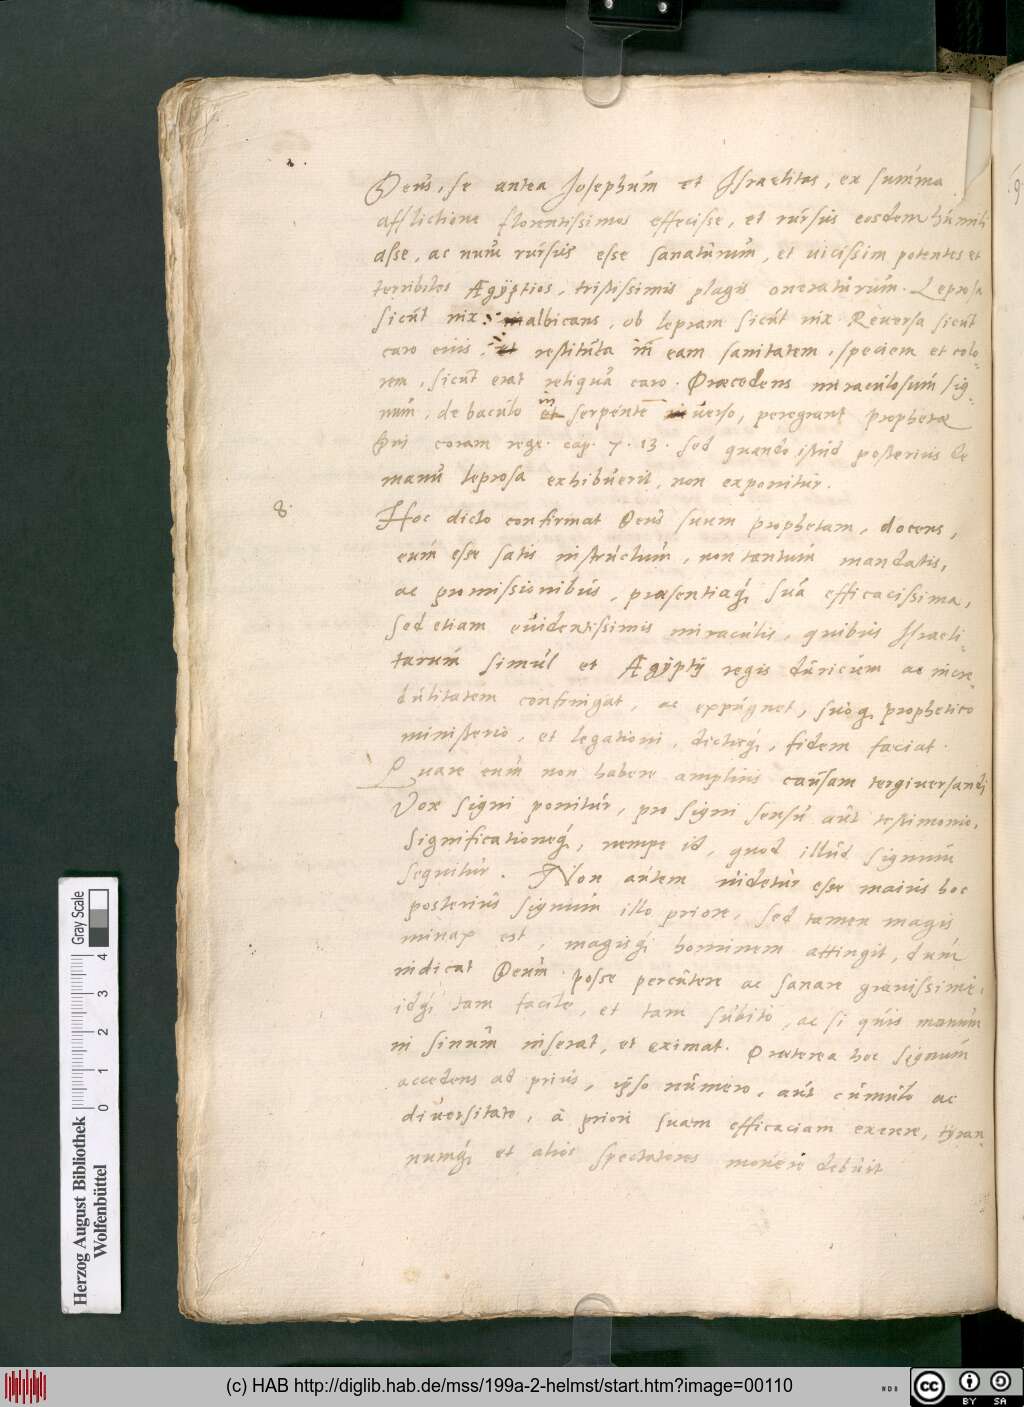 Deus, se antea Josephum et Israelitas, ex summa
afflictione florentissimos effecisse, et rursus eosdem humili
asse, ac nunc rursus esse sanaturum, et vicissim potentes et
terribiles Ægyptios, tristissimis plagis oneraturum. Leprosa
sicut nix: albicans, ob lepram sicut nix. Reversa sicut
caro eius: restituta in eam sanitatem, speciem et colo-
rem, sicut erat reliqua caro. Præcedens miraculosum sig-
num, de baculo in serpente verso, peregrant prophetæ
coram rege. cap. 7. 13. sed quando istud posterius de
manu leprosa exhibuerit, non exponitur.
8.
Hoc dicto confirmat Deus suum prophetam, docens,
eum esse satis instructum, non tantum mandatis,
ac promissionibus, præsentiaq; sua efficacissima,
sed etiam evidentissimis miraculis, quibus Israeli-
tarum simul et Ægyptij regis duriciem ac incre-
dulitatem confringat, ac expugnet, suoq; prophetico
ministerio, et legationi, dictisq;, fidem faciat.
Quare eum non habere amplius causam tergiversandi
Vox signi ponitur, pro signi sensu aut testimonio,
significationeq;, nempe id, quod illud signum
sequitur. Non autem videtur esse maius hoc
posterius signum illo priore, sed tamen magis
minax est, magisq; hominem attingit, dum
indicat Deum posse percutere ac sanare gravissime,
idq; tam facile, et tam subito, ac si quis manum
in sinum inserat, et eximat. Præterea hoc signum
accedens ad prius, ipso numero, aut cumulo ac
diversitate, à priori suam efficaciam exerere, tyran-
numq; et alios spectatores movere debuit
Herzog August Bibliothek
Wolfenbüttel
0 1 2 3 4
Gray Scale
(c) HAB http://diglib.hab.de/mss/199a-2-helmst/start.htm?image=00110
cc BY SA